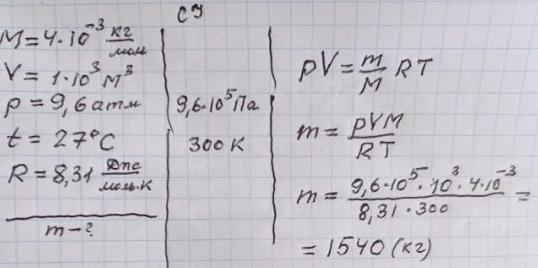 СИ
M = 4·10⁻³ кг/моль
V = 1·10³ м³
p = 9,6 атм
9,6·10⁵ Па
t = 27°C
300 К
R = 8,31 Дж/моль·К
m - ?
pV = m/M RT
m = pVM/RT
m = 9,6·10⁵·10³·4·10⁻³/8,31·300 =
= 1540 (кг)